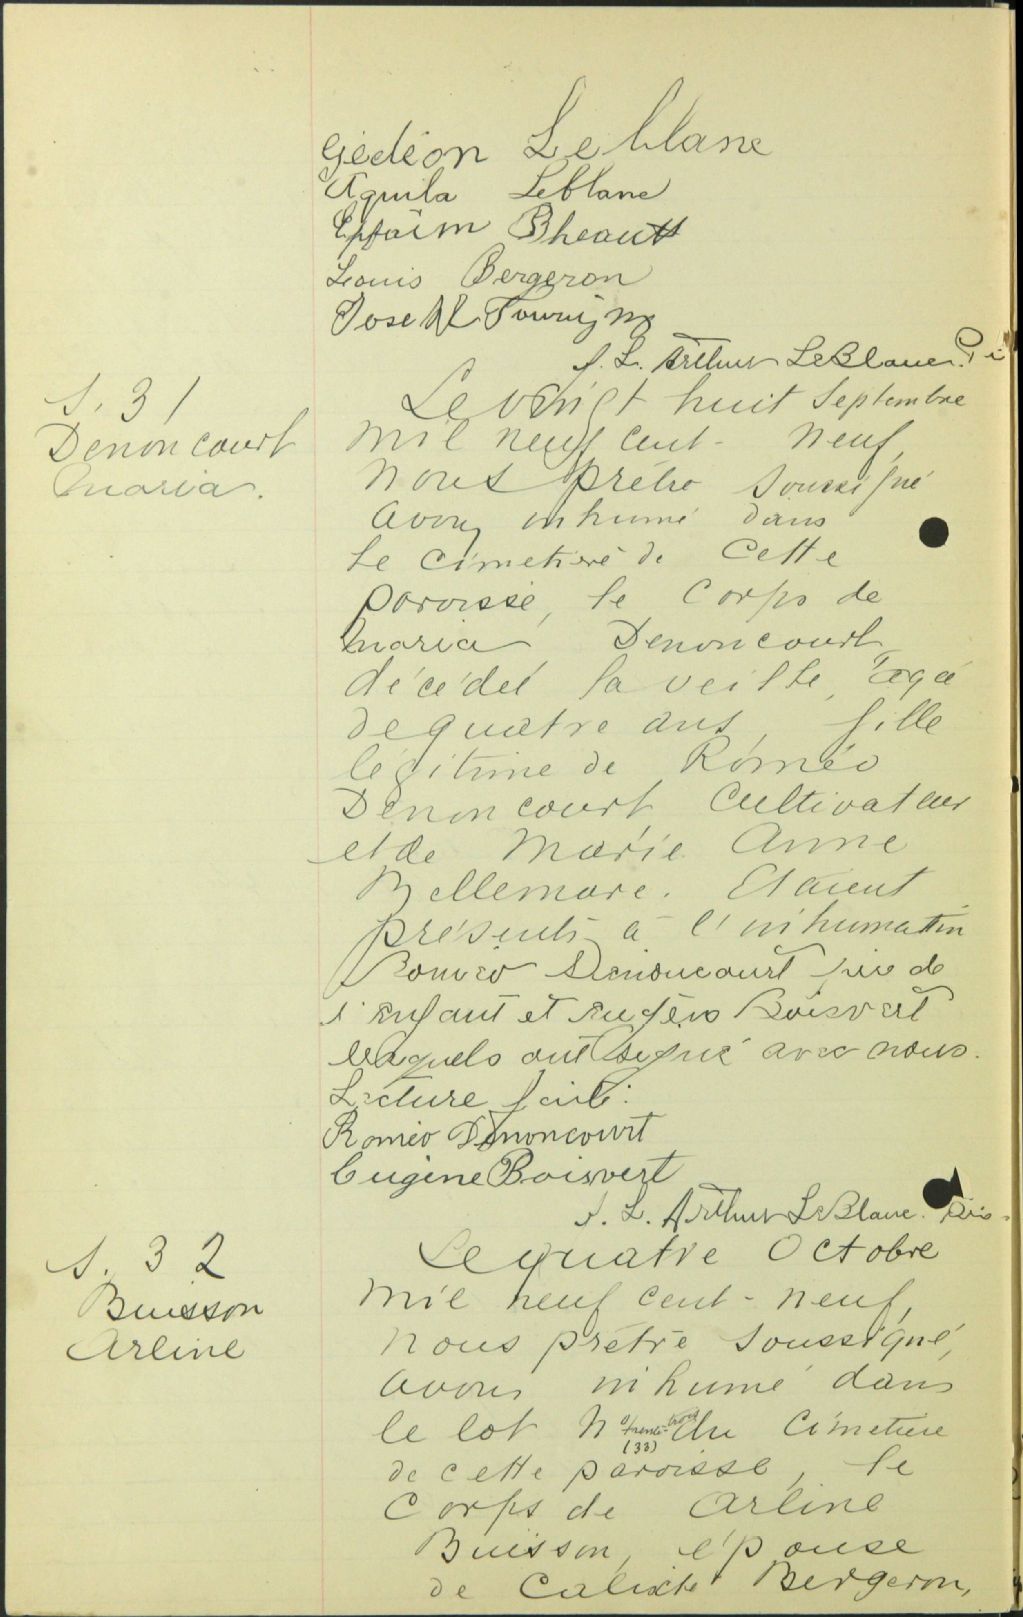 Gédéon Leblanc
Aquila Leblanc
Epfaïm Bheault
Louis Bergeron
Joseph Tourigny
J. L. Arthur LeBlanc. Ptr
S. 31
Denoncourt
Maria.
Le vingt huit Septembre
mil neuf cent- neuf,
nous prêtre soussigné
avons inhumé dans
le cimetière de cette
paroisse, le corps de
Maria Denoncourt
décédée la veille, agée
de quatre ans, fille
légitime de Roméo
Denoncourt cultivateur
et de Marie Anne
Bellemare. Etaient
présents à l'inhumation
Roméo Denoncourt père de
l'enfant et Eugène Boisvert
lesquels ont signé avec nous.
Lecture faite.
Roméo Denoncourt
Eugène Boisvert
J. L. Arthur LeBlanc. Ptre.
S. 32
Buisson
Arline
Le quatre Octobre
mil neuf cent- neuf,
nous prêtre soussigné,
avons inhumé dans
le lot No trente-trois (33) du cimetière
de cette paroisse, le
corps de Arline
Buisson, épouse
de Calixte Bergeron,